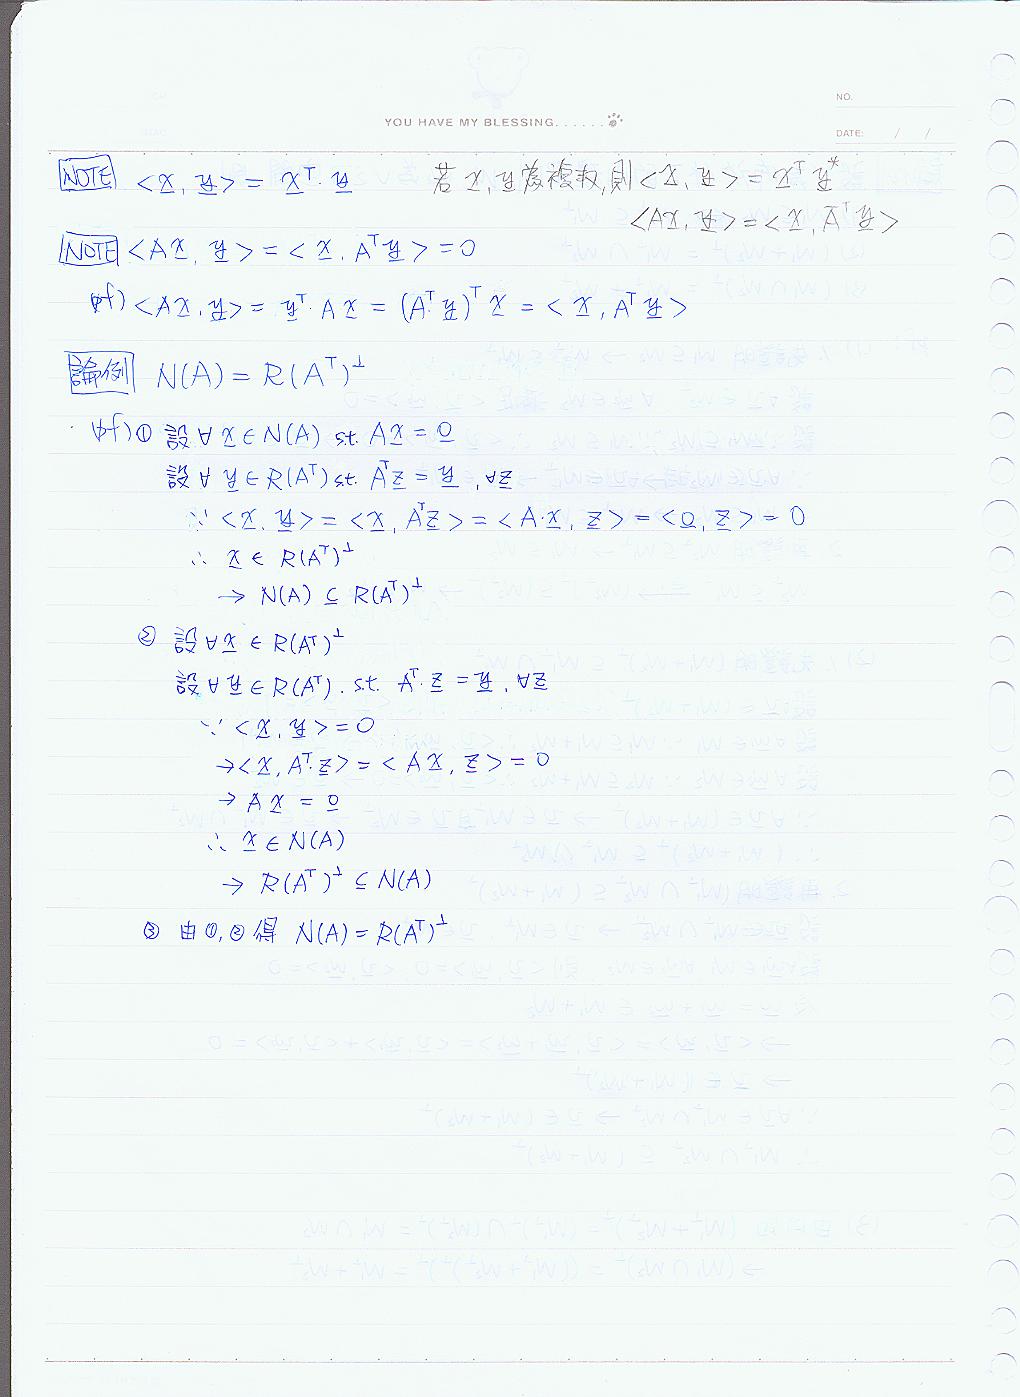 YOU HAVE MY BLESSING......
NO.
DATE: / /
NOTE <x, y> = x^T · y 若 x, y 為複數, 則 <x, y> = x^T y*
<Ax, y> = <x, A^T y>
NOTE <Ax, y> = <x, A^T y> = 0
pf) <Ax, y> = y^T · A x = (A^T y)^T x = <x, A^T y>
論例 N(A) = R(A^T)^⊥
pf) ① 設 ∀ x ∈ N(A) s.t. Ax = 0
設 ∀ y ∈ R(A^T) s.t. A^T z = y, ∀z
∵ <x, y> = <x, A^T z> = <A·x, z> = <0, z> = 0
∴ x ∈ R(A^T)^⊥
→ N(A) ⊆ R(A^T)^⊥
② 設 ∀ x ∈ R(A^T)^⊥
設 ∀ y ∈ R(A^T). s.t. A^T · z = y, ∀z
∵ <x, y> = 0
→ <x, A^T · z> = <Ax, z> = 0
→ Ax = 0
∴ x ∈ N(A)
→ R(A^T)^⊥ ⊆ N(A)
③ 由①,②得 N(A) = R(A^T)^⊥